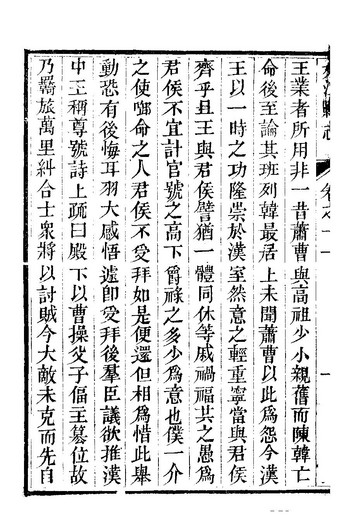 縣志 卷之十一 一
王業者所用非一昔蕭曹與高祖少小親舊而陳韓亡
命後至論其班列韓最居上未聞蕭曹以此爲怨今漢
王以一時之功隆崇於漢室然意之輕重寧當與君侯
齊乎且王與君侯譬猶一體同休等戚禍福共之愚爲
君侯不宜計官號之高下爵祿之多少爲意也僕一介
之使啣命之人君侯不受拜如是便還但相爲惜此舉
動恐有後悔耳羽大感悟遽卽受拜後羣臣議欲推漢
中王稱尊號詩上疏曰殿下以曹操父子偪主篡位故
乃羈旅萬里糾合士衆將以討賊今大敵未克而先自